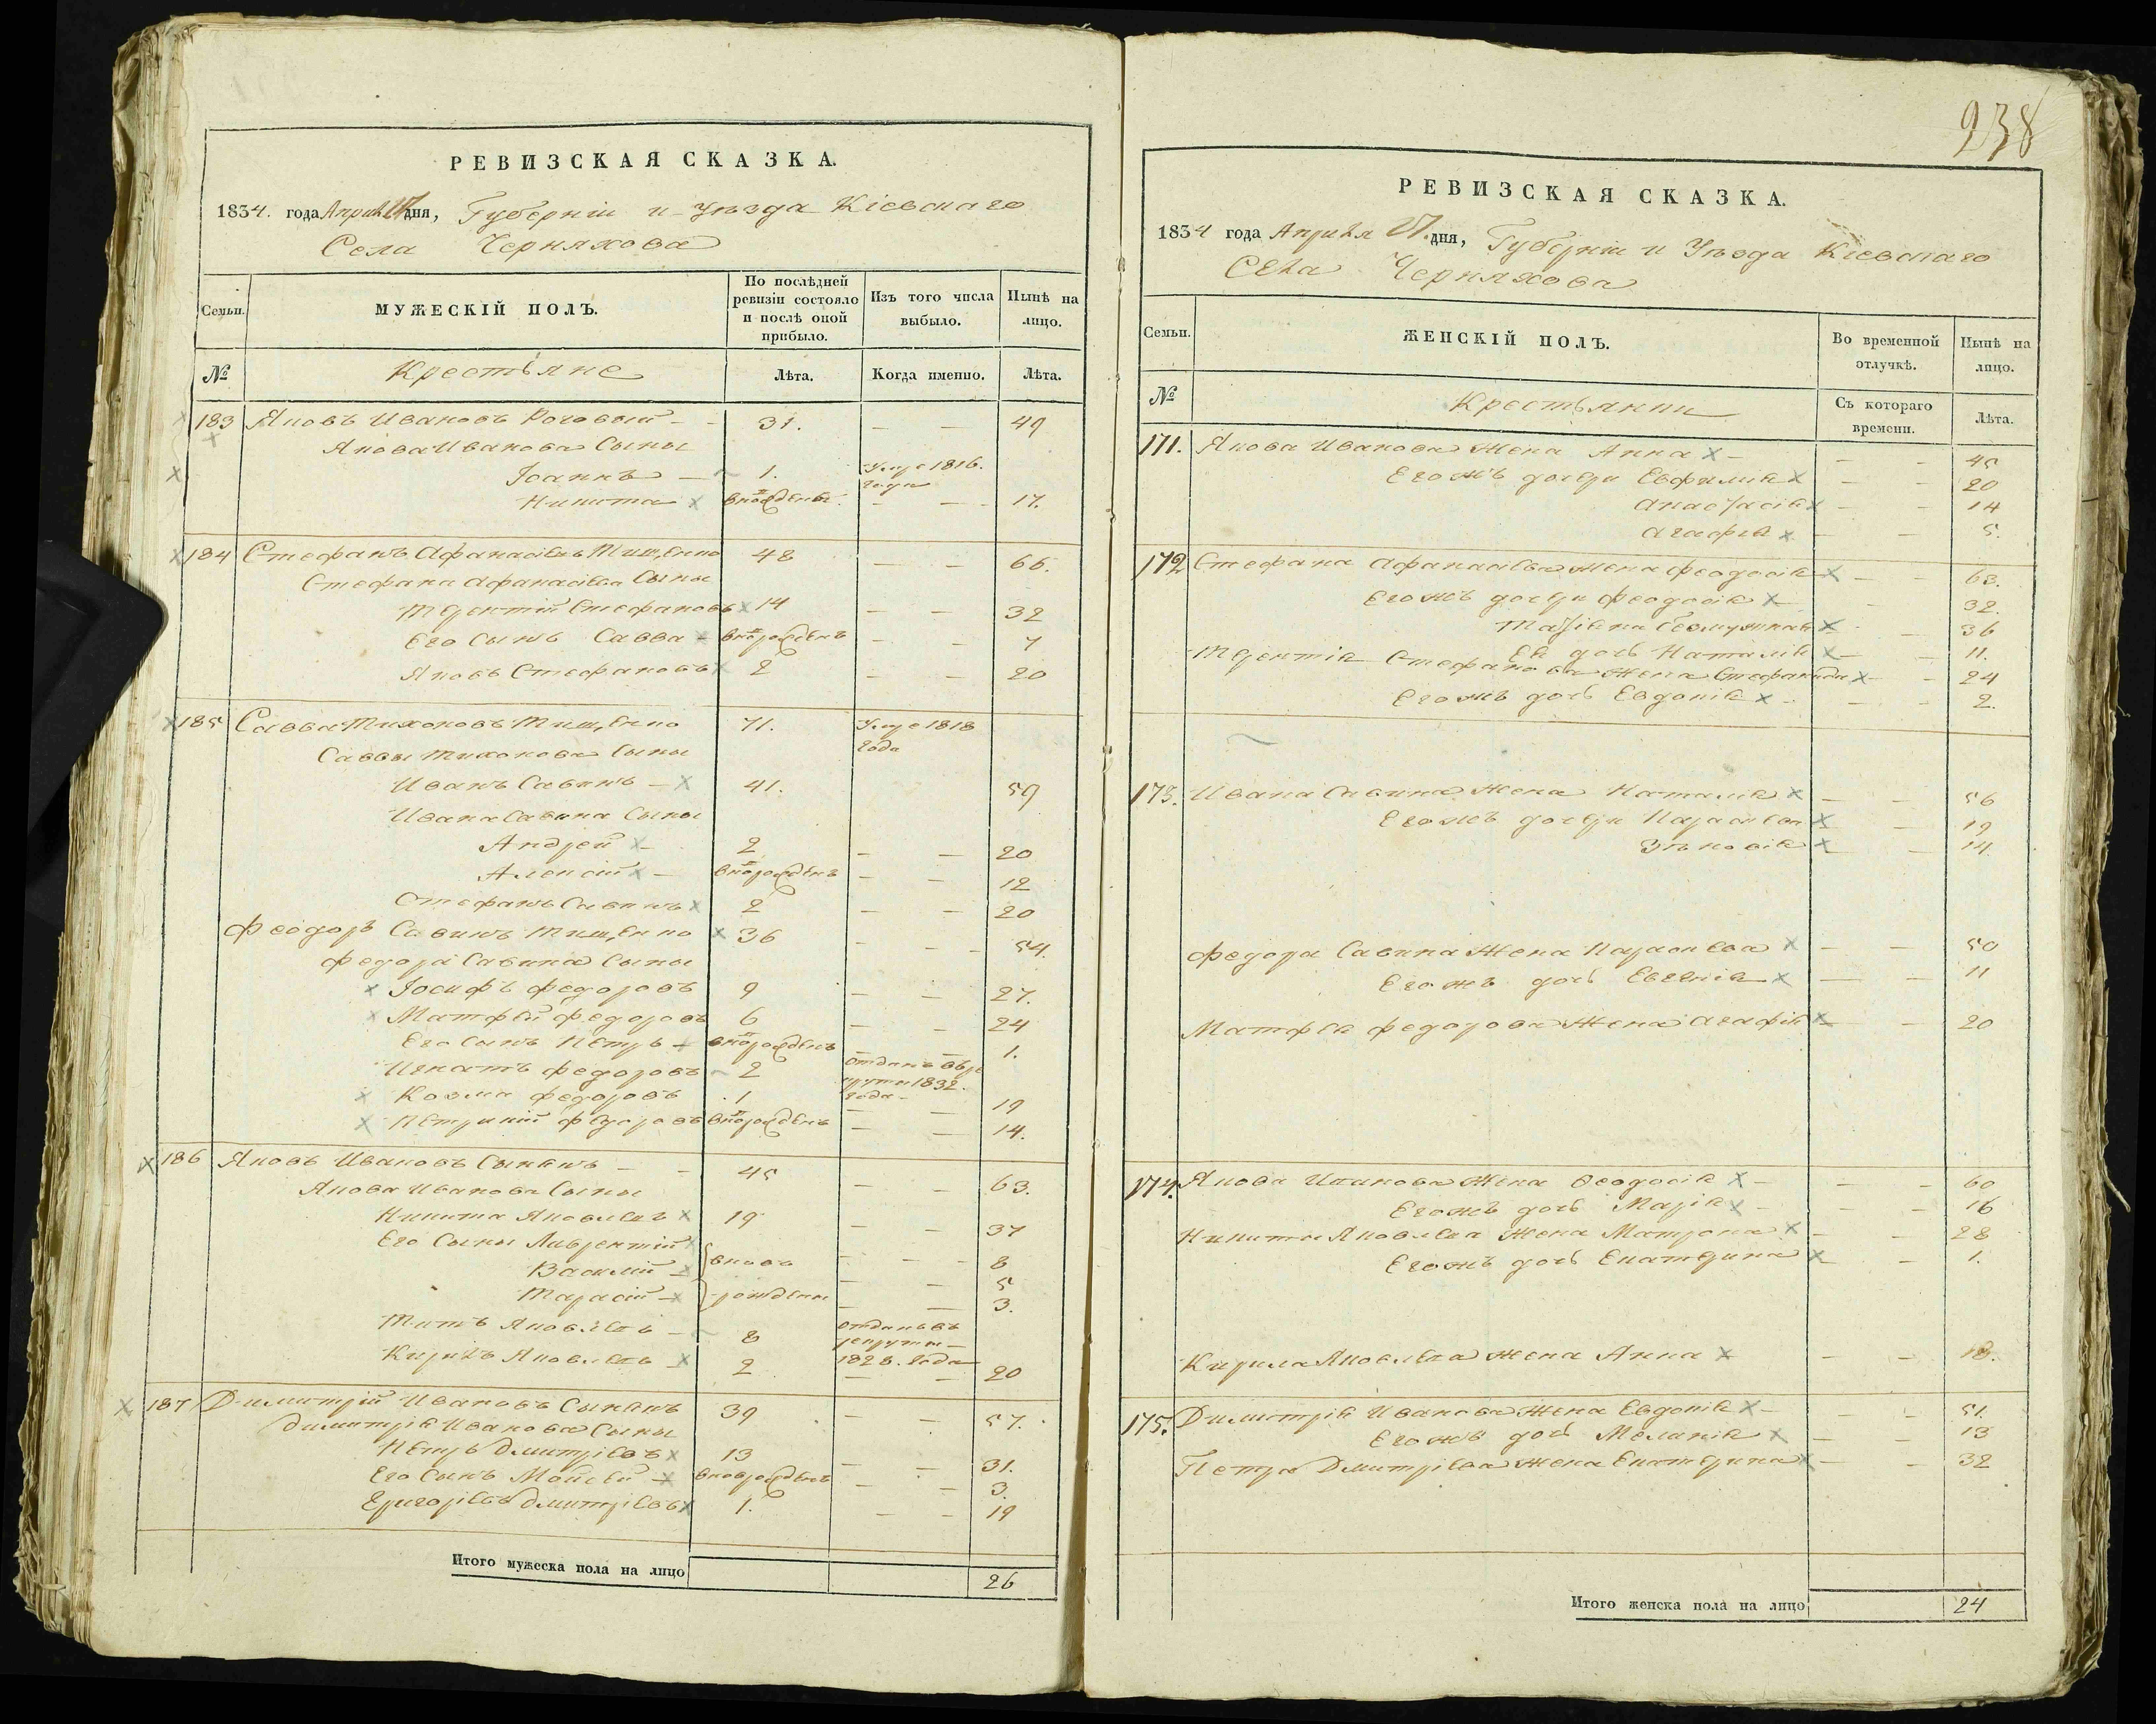 РЕВИЗСКАЯ СКАЗКА.
1834. года Апреля 27 дня, Губерніи и Уѣзда Кіевскаго
Села Черняхова
Семьи. МУЖЕСКІЙ ПОЛЪ. По послѣдней ревизіи состояло и послѣ оной прибыло. Изъ того числа выбыло. Нынѣ на лицо.
№ Крестьяне Лѣта. Когда именно. Лѣта.
183 Яковъ Ивановъ Роговый - - 31. — — 49
Якова Иванова Сыны
Іоаннъ — 1. Умре 1816. года
Никита вновь рожденъ — — 17.
184 Стефанъ Афанасіевъ Тищенко 48 — — 66.
Стефана Афанасіева Сыны
Терентій Стефановъ 14 — — 32
Его Сынъ Савва - вновь рожденъ — — 7
Яковъ Стефановъ 2 — — 20
185 Савва Тихоновъ Тищенко 71. Умре 1818 года
Саввы Тихонова Сыны
Иванъ Савинъ — 41. 59
Ивана Савина Сыны
Андрей 2 — — 20
Алексій — вновь рожденъ — — 12
Стефанъ Савинъ 2 — — 20
Феодоръ Савинъ Тищенко 36 — — 54.
Федора Савина Сыны
Іосифъ Федоровъ 9 — — 27.
Матфей Федоровъ 6 — — 24
Его Сынъ Петръ — вновь рожденъ — — 1.
Игнатъ Федоровъ 2 отданъ въ рекруты 1832. года
Козма Федоровъ 1 — — 19
Федоровъ вновь рожденъ — — 14.
186 Яковъ Ивановъ — - 45 — — 63.
Якова Иванова Сыны
Никита Яковлевъ 19 — — 37
Его Сыны Лаврентій вновь — — 8
Василій — — 5
Тарасій рождены — — 3.
Титъ Яковлевъ — 8 отданъ въ рекруты 1828. года
Кирилъ Яковлевъ 2 — — 20
187 Димитрій Ивановъ 39 — — 57.
Димитрія Иванова Сыны
Петръ Дмитріевъ 13 — — 31.
Его Сынъ Мойсей — вновь рожденъ — — 3.
Дмитріевъ 1. — — 19
Итого мужеска пола на лицо 26
238
РЕВИЗСКАЯ СКАЗКА.
1834 года Апреля 27. дня, Губерніи и Уѣзда Кіевскаго
Села Черняхова
Семьи. ЖЕНСКІЙ ПОЛЪ. Во временной отлучкѣ. Нынѣ на лицо.
№ Крестьянки Съ котораго времени. Лѣта.
171. Якова Иванова Жена Анна — — — 45
Егожъ дочери Евфимія — — 20
Анастасія — — 14
Агафія — — 5.
172 Стефана Афанасіева Жена Феодосія — — 63.
Егожъ дочери Феодосія — 32.
Татіана безмужная — 36
Ея дочь Наталія — — 11.
Терентія Стефанова Жена Стефанида — — 24
Егожъ дочь Евдокія — — — 2.
173. Ивана Савина Жена Наталія — — 56
Егожъ дочери Параскева — — 19
Зѣновія — — 14
Федора Савина Жена Параскева — — 50
Егожъ дочь Евгенія — — 11
Матфея Федорова Жена Агафія — — 20
174. Якова Иванова Жена Феодосія — — — 60
Егожъ дочь Марія — — 16
Никиты Яковлева Жена Матрона — — 28
Егожъ дочь Екатерина — — 1.
Кирила Яковлева Жена Анна — — 18.
175. Димитрія Иванова Жена Евдокія — — — 51.
Егожъ дочь Меланія — — 13
Петра Дмитріева Жена Екатерина — — 32
Итого женска пола на лицо 24